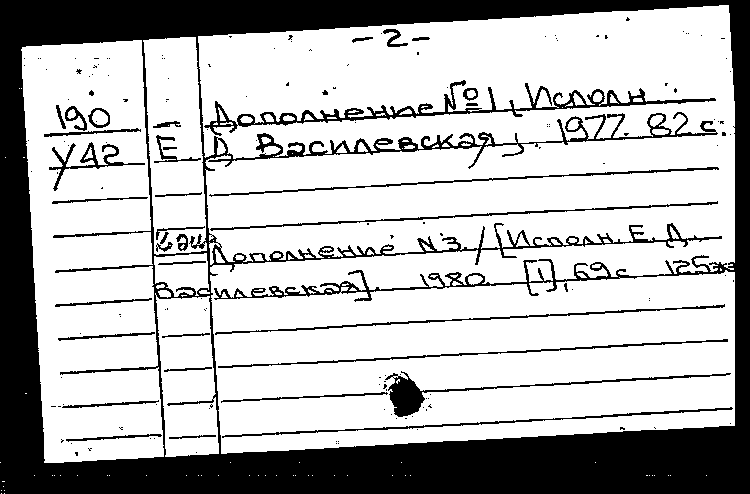 - 2 -
190 — Дополнение №1, Исполн.
У42 Е. Д. Василевская, 1977. 82 с.
2 экз Дополнение N3. / [Исполн. Е. Д.
Василевская]. 1980. [1], 69 с 125 экз